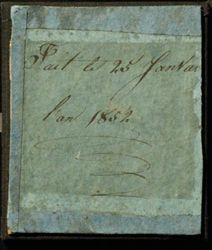 Fait le 25 Janvier
l'an 1852